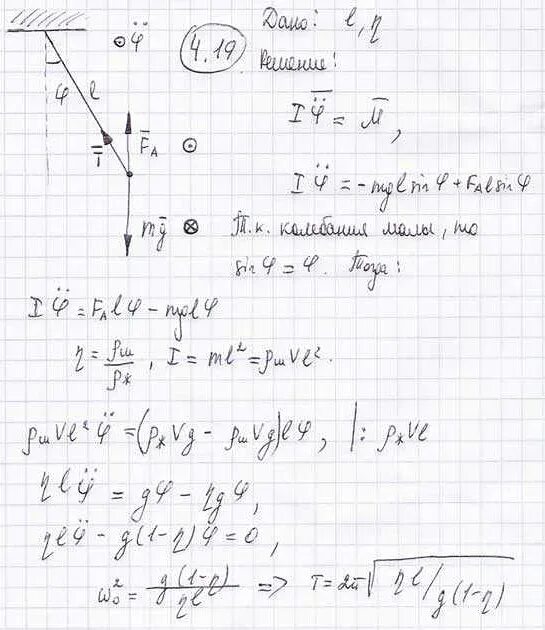 φ̈
4.19
Дано: l, η
Решение:
φ l
T̄
F̄_A
mḡ
Iφ̈̄ = M̄,
Iφ̈ = -mgl sinφ + F_A l sinφ
Т.к. колебания малы, то
sinφ = φ. Тогда:
Iφ̈ = F_A lφ - mglφ
η = ρ_ш/ρ_ж, I = ml² = ρ_ш Vl².
ρ_ш Vl² φ̈ = (ρ_ж Vg - ρ_ш Vg)lφ, |: ρ_ж Vl
ηlφ̈ = gφ - ηgφ,
ηlφ̈ - g(1-η)φ = 0,
ω₀² = g(1-η)/ηl => T = 2π√(ηl/g(1-η))